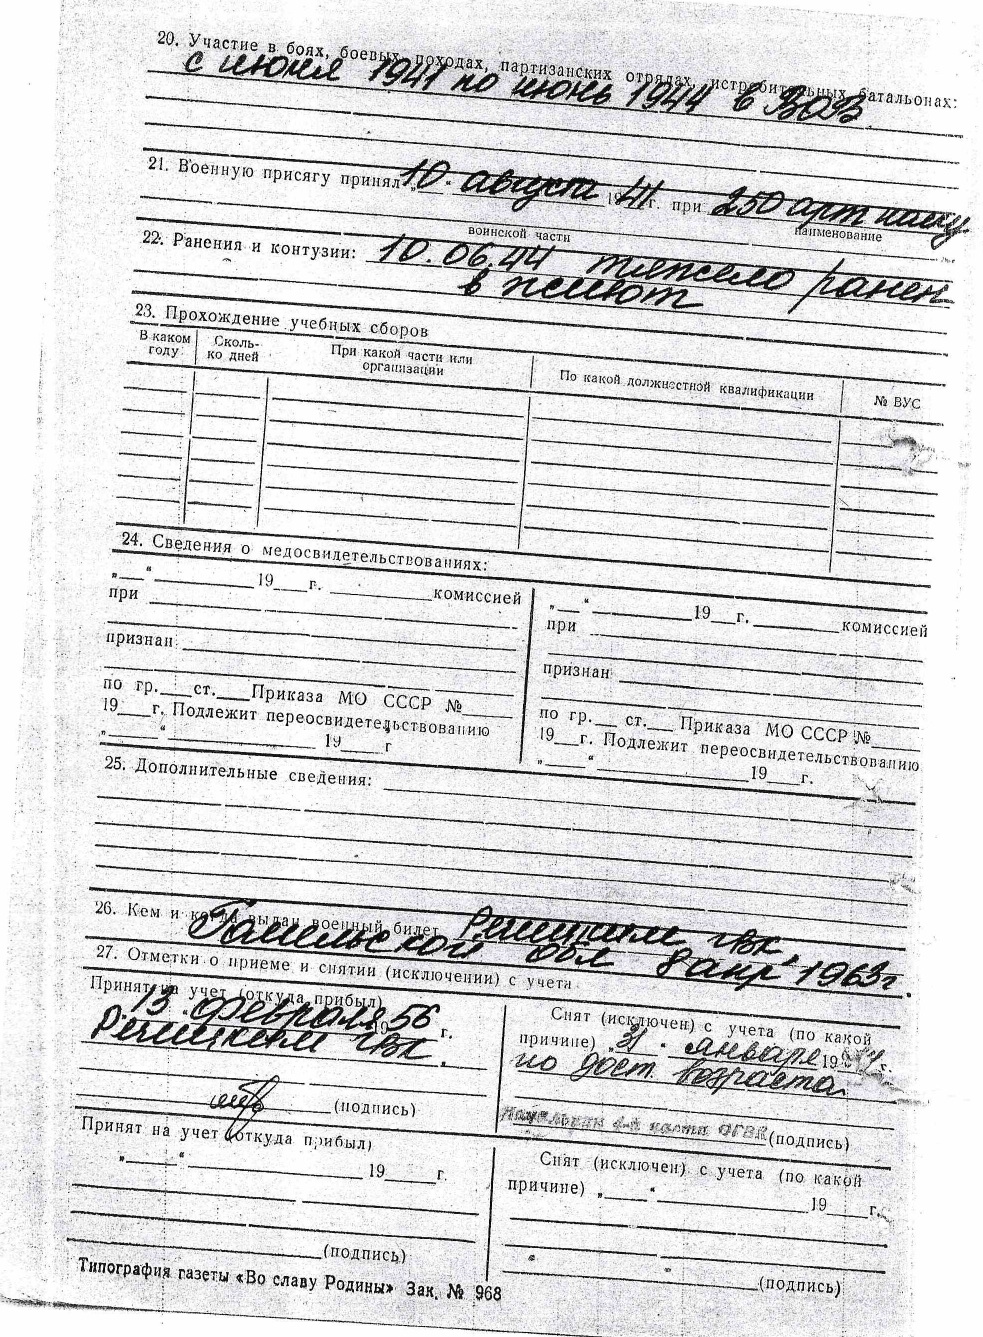 20. Участие в боях, боевых походах, партизанских отрядах, истребительных батальонах:
с июня 1941 по июнь 1944 в ВОВ
21. Военную присягу принял „10“ августа 1941 г. при 250 арт полку
воинской части наименование
22. Ранения и контузии: 10.06.44 тяжело ранен
в живот
23. Прохождение учебных сборов
В каком году: Сколь- При какой части или По какой должностной квалификации № ВУС
ко дней организации
24. Сведения о медосвидетельствованиях:
„ “ 19 г. комиссией
при
признан:
по гр. ст. Приказа МО СССР №
19 г. Подлежит переосвидетельствованию
„ “ 19 г
„ “ 19 г. комиссией
при
признан:
по гр. ст. Приказа МО СССР №
19 г. Подлежит переосвидетельствованию
„ “ 19 г.
25. Дополнительные сведения:
26. Кем и когда выдан военный билет Речицким РВК
Гомельской обл 8 апр. 1963г.
27. Отметки о приеме и снятии (исключении) с учета
Принят на учет (откуда прибыл)
13 февраля 1956 г.
Речицким РВК.
(подпись)
Снят (исключен) с учета (по какой
причине) „31“ января 19 г.
по дост. возраста
(подпись)
Принят на учет (откуда прибыл)
„ “ 19 г.
(подпись)
Снят (исключен) с учета (по какой
причине) „ “ 19 г.
„ “
(подпись)
Типография газеты «Во славу Родины» Зак. № 968